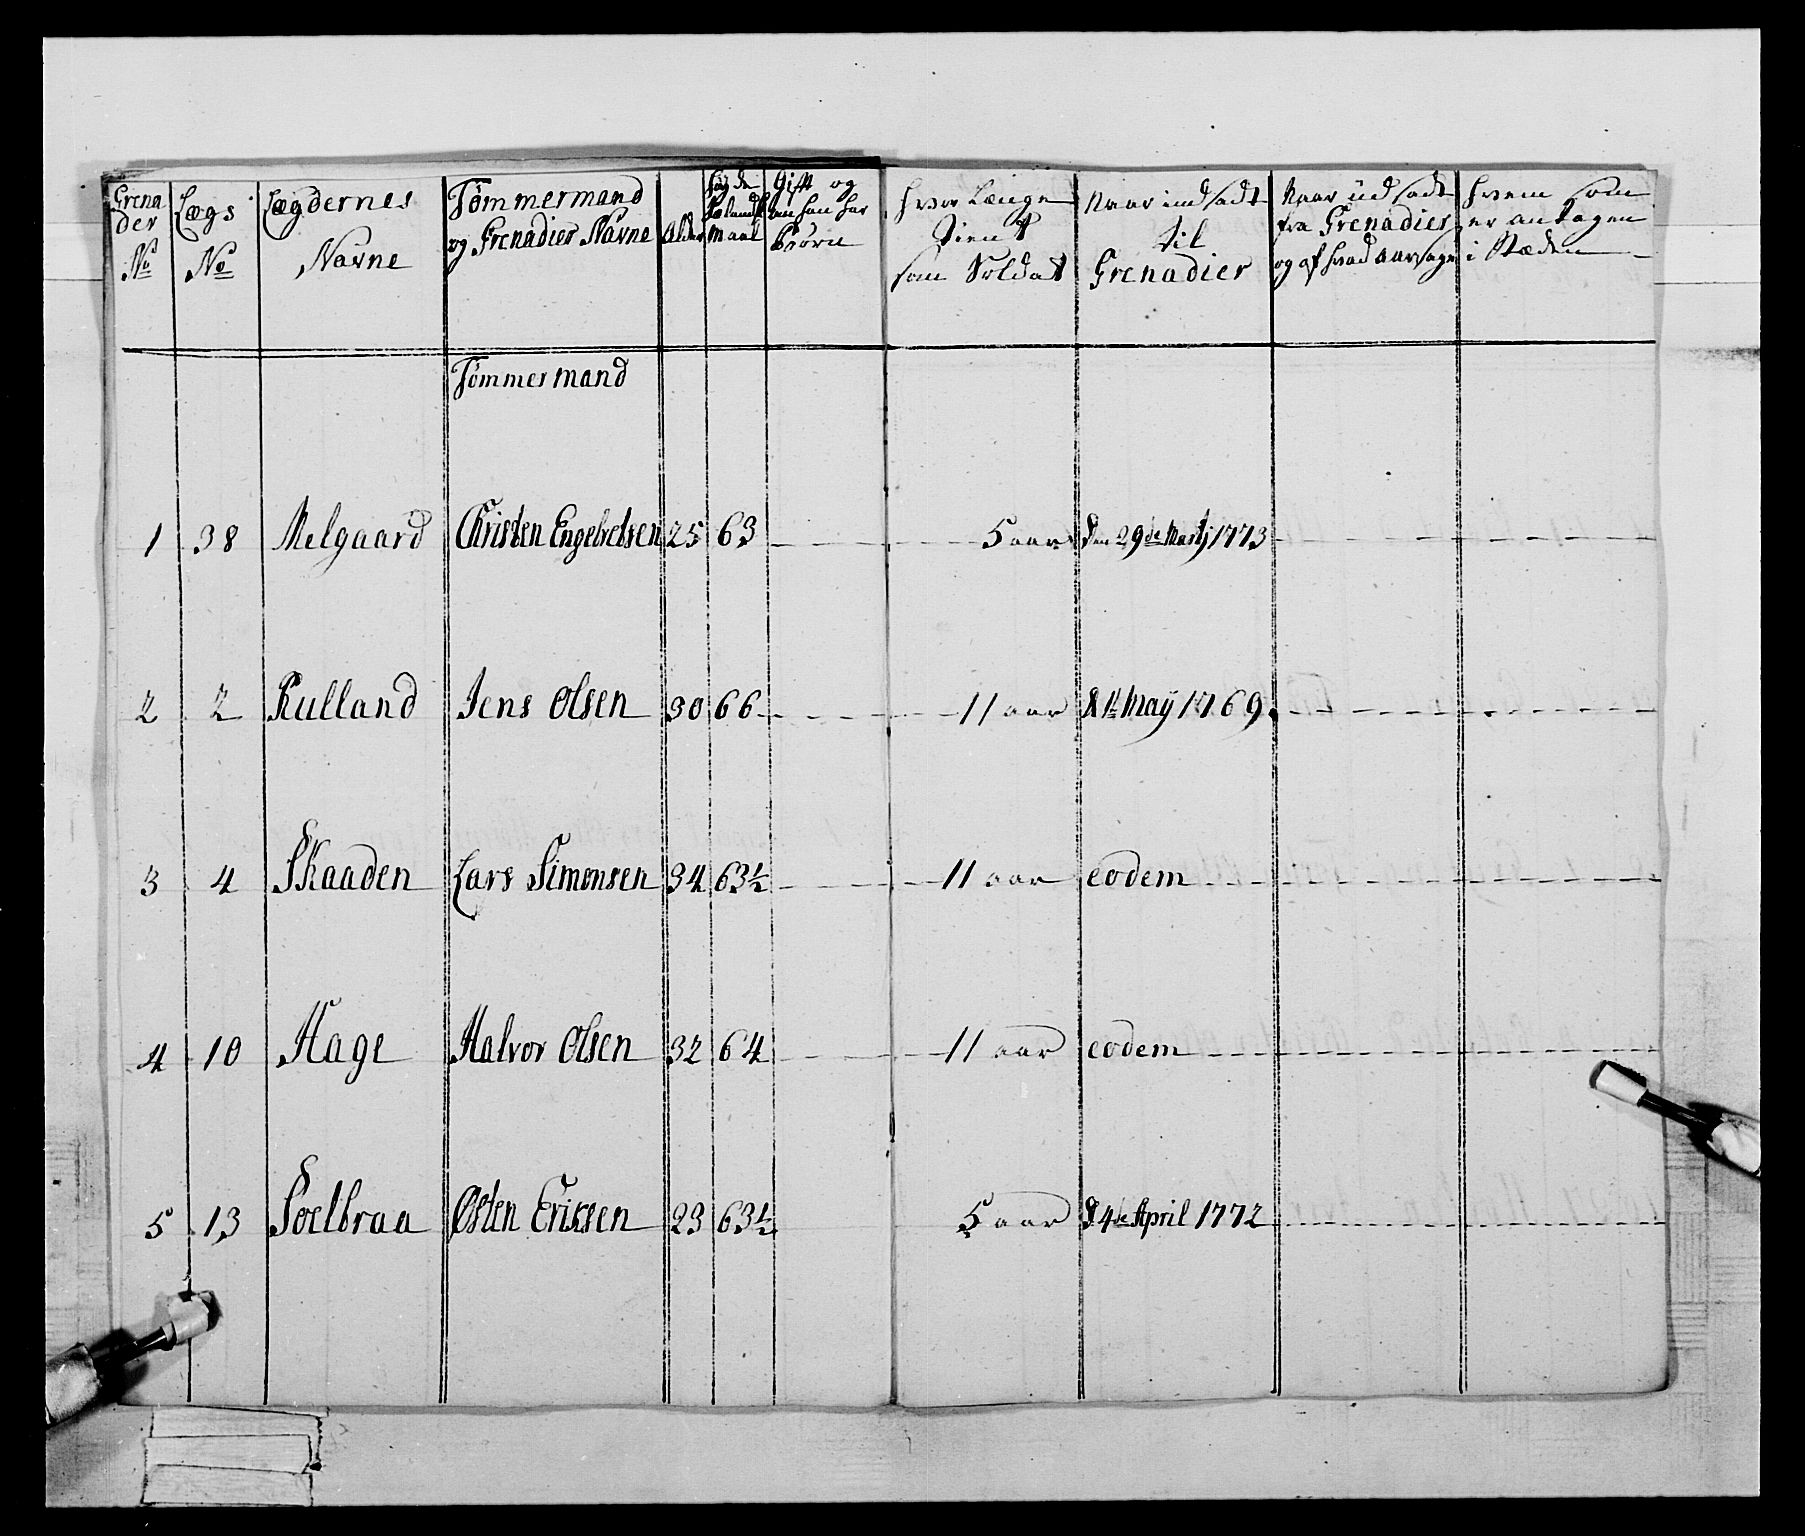 Grenader No | Lægs No | Lægdernes Navne | Tømmermand og Grenadier Navne | Alder | Høyde Sælands Maal | Gift og om han har Børn | hvor Længe Tient som Soldat | Naar indsadt til Grenadier | Naar udsadt fra Grenadier og af hvad aarsage | hvem som er antagen i Stæden
Tømmermand
1 | 38 | Melgaard | Christen Engebretsen | 25 | 63 | 5 aar | den 29de Martj 1773
2 | 2 | Rulland | Jens Olsen | 30 | 66 | 11 aar | d 1te Maÿ 1769.
3 | 4 | Skaaden | Lars Simonsen | 34 | 63½ | 11 aar | eodem
4 | 10 | Hage | Halvor Olsen | 32 | 64 | 11 aar | eodem
5 | 13 | Soelbraa | Østen Erissen | 23 | 63½ | 5 aar | d 4de April 1772